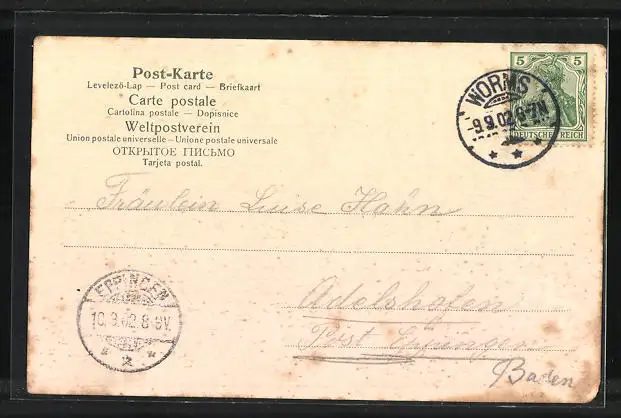 Post-Karte
Levelezö-Lap — Post card — Briefkaart
Carte postale
Cartolina postale — Dopisnice
Weltpostverein
Union postale universelle – Unione postale universale
ОТКРЫТОЕ ПИСЬМО
Tarjeta postal.
5 5
DEUTSCHES REICH
WORMS
-9.9.02.6-7N
Fräulein Luise Hahn
EPPINGEN
10.9.02.8-9V
Adelshofen
Post Eppingen
Baden